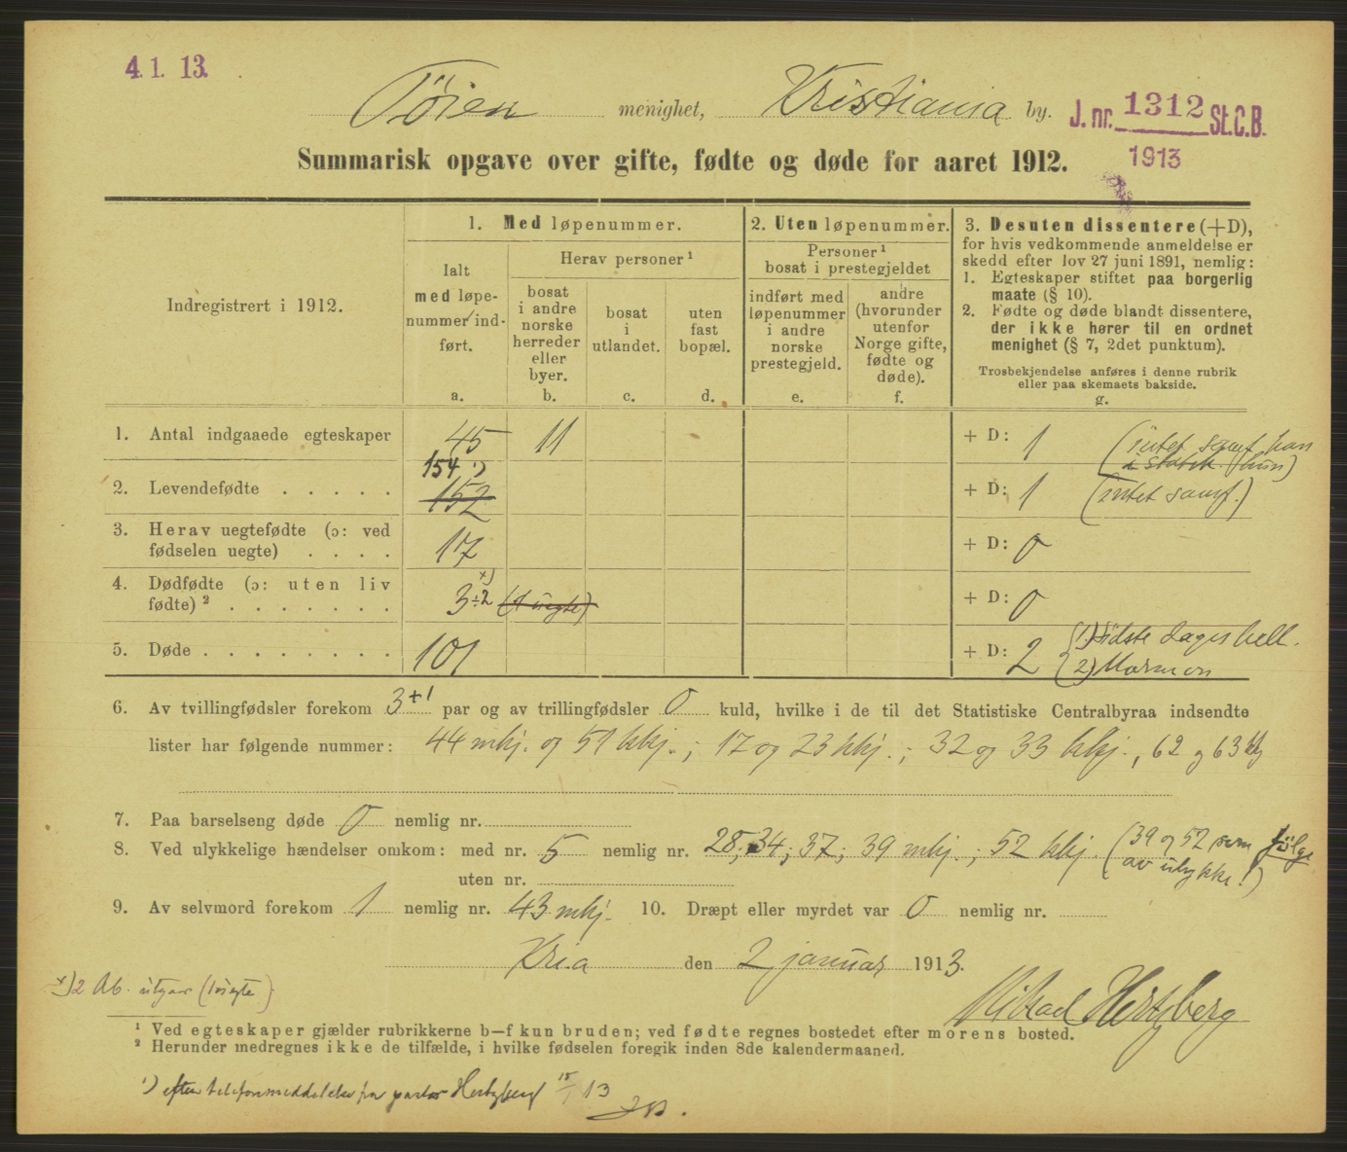 4. 1. 13.
Tøien menighet, Kristiania by.
J. nr. 1312 St. C. B.
1913
Summarisk opgave over gifte, fødte og døde for aaret 1912.
Indregistrert i 1912.
1. Med løpenummer.
Ialt
med løpe-
nummer ind-
ført.
a.
Herav personer ¹
bosat
i andre
norske
herreder
eller
byer.
b.
bosat
i
utlandet.
c.
uten
fast
bopæl.
d.
2. Uten løpenummer.
Personer ¹
bosat i prestegjeldet
indført med
løpenummer
i andre
norske
prestegjeld.
e.
andre
(hvorunder
utenfor
Norge gifte,
fødte og
døde).
f.
3. Desuten dissentere (+D),
for hvis vedkommende anmeldelse er
skedd efter lov 27 juni 1891, nemlig:
1. Egteskaper stiftet paa borgerlig
maate (§ 10).
2. Fødte og døde blandt dissentere,
der ikke hører til en ordnet
menighet (§ 7, 2det punktum).
Trosbekjendelse anføres i denne rubrik
eller paa skemaets bakside.
g.
1. Antal indgaaede egteskaper 45 11 + D: 1 (intet samf. han
i statsk. hun)
154 ¹)
2. Levendefødte . . . . . 152 + D: 1 (intet samf.)
3. Herav uegtefødte (ɔ: ved
fødselen uegte) . . . . 17 + D: 0
4. Dødfødte (ɔ: uten liv
fødte) ² . . . . . . . 3 ÷2 x) (1 uegte) + D: 0
5. Døde . . . . . . . . 101 + D: 2 (1) sidste dages hell.
(2) Mormon
6. Av tvillingfødsler forekom 3 +1 par og av trillingfødsler 0 kuld, hvilke i de til det Statistiske Centralbyraa indsendte
lister har følgende nummer: 44 mkj. og 51 kkj. ; 17 og 23 kkj. ; 32 og 33 kkj., 62 og 63 kkj
7. Paa barselseng døde 0 nemlig nr.
8. Ved ulykkelige hændelser omkom: med nr. 5 nemlig nr. 28, 34, 37, 39 mkj. ; 52 kkj. (39 og 52 som følge
av ulykke!)
uten nr.
9. Av selvmord forekom 1 nemlig nr. 43 mkj. 10. Dræpt eller myrdet var 0 nemlig nr.
Kria den 2 januar 1913.
Hertzberg
x) 2 Ab. utgaar (1 uegte)
¹ Ved egteskaper gjælder rubrikkerne b—f kun bruden; ved fødte regnes bostedet efter morens bosted.
² Herunder medregnes ikke de tilfælde, i hvilke fødselen foregik inden 8de kalendermaaned.
¹) efter telefonmeddelelse fra pastor Hertzberg 15/1 13